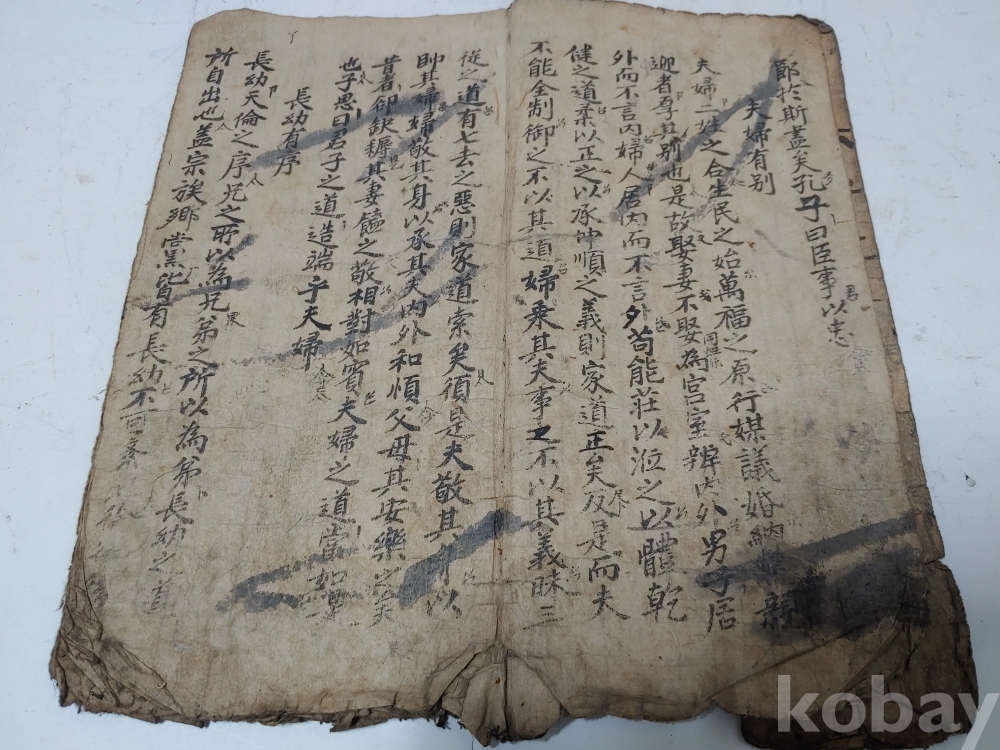 於斯盡矣孔子曰臣事君以忠
夫婦有別
夫婦二姓之合生民之始萬福之原行媒議婚納幣親
迎者厚其別也是故娶妻不娶同姓為宮室辨內外男子居
外而不言內婦人居內而不言外苟能莊以涖之以體乾
健之道柔以正之以承坤順之義則家道正矣反是而夫
不能全制御之不以其道婦乘其夫事之不以其義昧三
從之道有七去之惡則家道索矣須是夫敬其身以
帥其婦婦敬其身以承其夫內外和順父母其安樂之矣
昔者郤缺耨其妻饁之敬相對如賓夫婦之道當如是
也子思曰君子之道造端乎夫婦
長幼有序
長幼天倫之序兄之所以為兄弟之所以為弟長幼之道
所自出也蓋宗族鄉黨皆有長幼不可紊
kobay